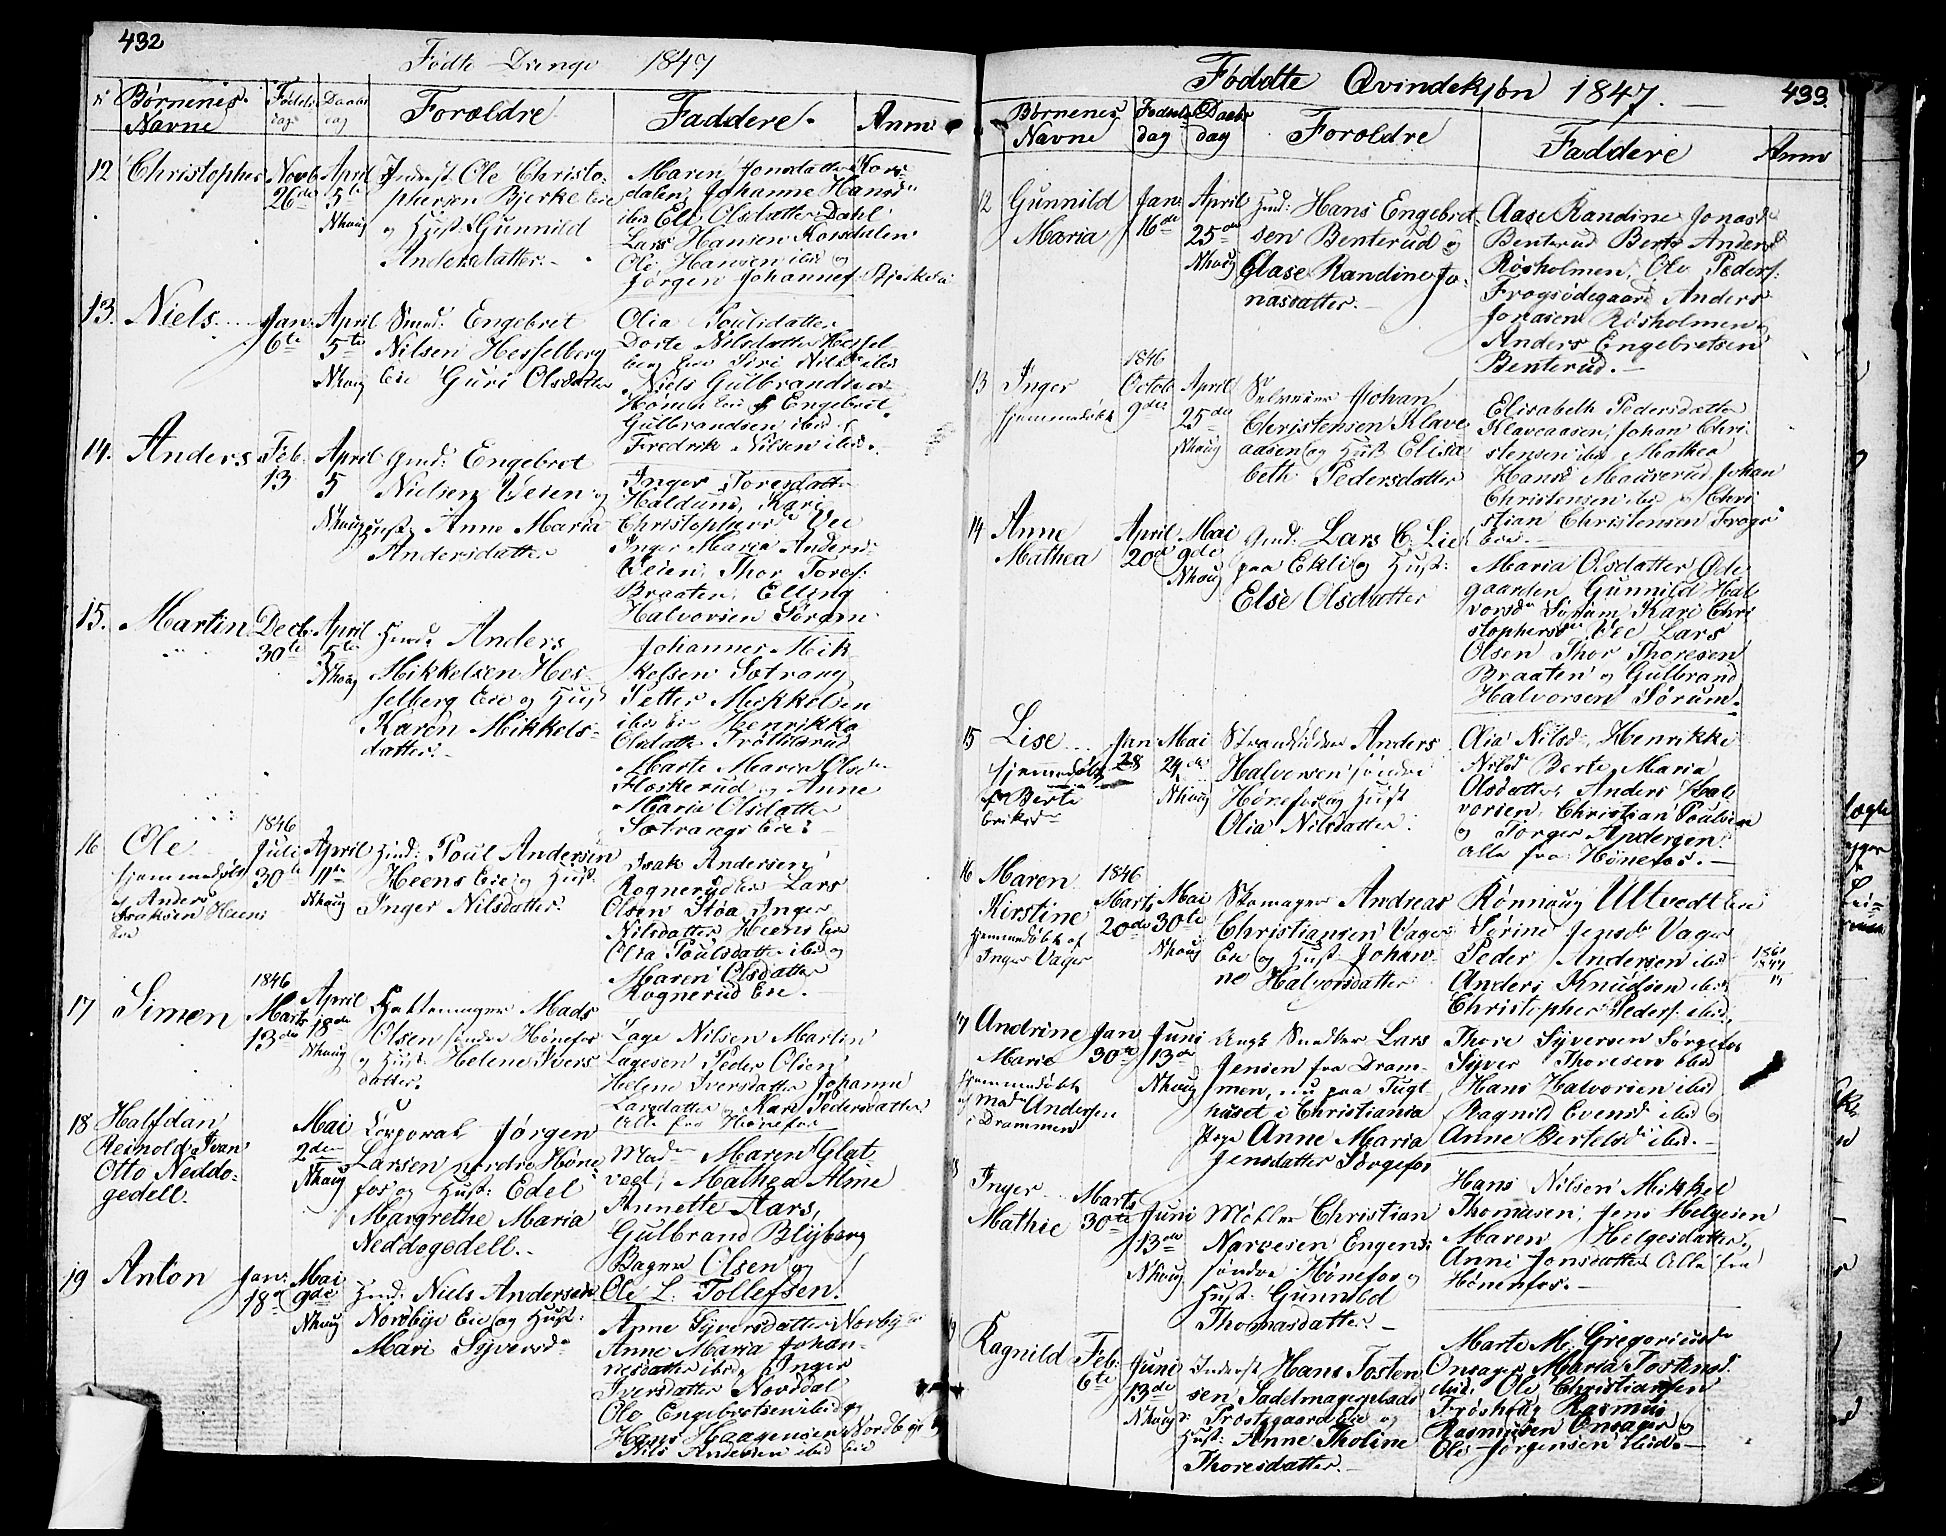 432
Fødte Drenge 1847
No Børnenes Navne Fødsels dag Daabs dag Forældre Faddere Anm:
12 Christopher Novb 26de April 5te Nhoug
Inderst Ole Christo-
phersen Bjerke Eie
og Hust: Gunnild
Andersdatter.
Maren Jonsdatter Kors-
dalen, Johanne Hansd
ibid Eli Olsdatter Dahl
Lars Hansen Korsdalen
Ole Hansen ibid og
Jørgen Johannes:
13. Niels Jan: 6te April 5te Nhoug
Smed: Engebret
Nilsen Hesselberg
Eie Guri Olsdatter
Olia Poulsdatter
Dorte Nilsdatter Hessel-
berg Eie Siri Nilsd ibid
Niels Gulbrandsen
Hønen Eie Engebret
Gulbrandsen ibid
Fredrik Nilsen ibid.
14. Anders Feb: 13 April 5 Nhoug
Gmd: Engebret
Nielsen Veien og
Hust: Anne Maria
Andersdatter
Inger Toresdatter
Haldum, Kari
Christophersd Vee
Inger Maria Andersd
Veien, Thor Tores:
Braaten, Elling
Halvorsen Sørum
15. Martin Decb: 30te April 5te Nhoug
Hmd: Anders
Mikkelsen Hes-
selberg Eie og Hust
Karen Mikkels-
datter.
Johannes Mik-
kelsen Sætrang
Petter Mikkelsen
ibid Eie Henrikka
Olsdatter Trøllerud
Marte Maria Olsd
Floskerud og Anne
Maria Olsdatter
Sætrangs Eie.
16 Ole 1846 Juli 30te April 11te Nhoug
hjemmedøbt
af Anders
Isaksen Heens
Eie
Hmd: Poul Andersen
Heens Eie og Hust:
Inger Nilsdatter.
Isak Andersen
Rognerud Eie Lars
Olsen Støa, Inger
Nilsdatter Heens Eie
Olia Poulsdatter ibid og
Maren Olsdatter
Rognerud Eie.
17 Simen 1846 Marts 13de April 18de Nhoug
Hattemager Mads
Olsen søndre Hønefos
og Hust: Helene Ivers
datter.
Lage Nilsen Martin
Lagesen Peder Olsen
Helene Iversdatter Johanne
Larsdatter Kari Pedersdatter
Alle fra Hønefos
18 Halfdan Mai 2den Nhoug
Reinoldt Ivan
Otto Neddo-
gedell.
Corporal Jørgen
Larsen nordre Høne-
fos og Hust: Edel
Margrethe Maria
Neddegedell.
Mad Maren Glat-
ved, Mathea Alme
Annette Aars,
Gulbrand Blyberg
Bager Olsen og
Ole L. Tollefsen.
19 Anton Jan: 18de Mai 9de Nhoug
Hmd: Niels Andersen
Nordbye Eie og Hust:
Mari Syversd
Anne Syversdatter Nordby Eie
Anne Maria Johan-
nesdatter ibid, Inger
Iversdatter Norddal
Ole Engebretsen ibid og
Hans Haagensen Nordbye
Nils Andersen ibid Eie
Fødte Qvindekjøn 1847. 433.
Børnenes Navne Fødsels dag Daabs dag Forældre Faddere Anm
12 Gunnild Maria Jan: 16de April 25de Nhoug
Hmd: Hans Engebret-
sen Benterud og
Aase Randine Jo-
nasdatter.
Aase Randine Jonasd
Benterud Berte Andersd
Røsholmen, Ole Peders:
Frogsødegaard Anders
Jonasen Røsholmen
Anders Engebretsen
Benterud.
13 Inger 1846 Octob 9de April 25de Nhoug
hjemmedøbt
Selveier Johan
Christensen Klave-
aasen og Hust Elisa
beth Pedersdatter
Elisabeth Pedersdatter
Klaveaasen, Johan Chri-
stensen ibid Mathea
Hansd Maurerud Johan
Christensen ibid og Chri
stian Christensen Frogs
Eie.
14 Anne Mathea April 20de Mai 9de Nhoug
Gmd: Lars C. Lie
paa Ekli og Hust:
Else Olsdatter
Maria Olsdatter Øde-
gaarden Gunnild Hal-
vorsd Sørum, Kari Chri
stophersd Vee Lars
Olsen Thor Thoresen
Braaten og Gulbrand
Halvorsen Sørum.
15 Lise Jan 28 Mai 24de Nhoug
hjemmedøbt
af Berte
Eriksd
Strandsidder Anders
Halvorsen søndre
Hønefos og Hust
Olia Nilsdatter.
Olia Nilsd, Henrikke
Nilsd Berte Maria
Olsdatter, Anders Hal-
vorsen, Christian Poulsen
og Torger Andersen
Alle fra Hønefos.
16 Maren Kirstine 1846 Marts 20de Mai 30te Nhoug
hjemmedøbt af
Inger Vager
Skomager Andreas
Christiansen Vager
Eie og Hust Johan-
ne Halvorsdatter
Rønnaug Ultvedt Eie
Sørine Jensd Vager
Peder Andersen ibid
Anders Knudsen ibid
Christopher Peders: ibid.
17 Andrine Marie Jan 30te Juni 13de Nhoug
hjemmedøbt
af Mad Andersen
i Drammen
Ungk Snedker Lars
Jensen fra Dram-
men, nu paa Tugt-
huset i Christiania
Pige Anne Maria
Jensdatter Sørgefos
Thore Syversen Sørgefos
Syver Thoresen ibid
Hans Halvorsen ibid
Ragnild Evensd ibid og
Anne Bertelsd ibid.
18 Inger Mathie Marts 30te Juni 13de Nhoug
Møller Christian
Narvesen Engens
søndre Hønefos og
Hust: Gunnild
Thomasdatter.
Hans Nilsen Mikkel
Thomasen, Jens Helgesen
Maren Helgesdatter,
Anne Jonsdatter Alle fra
Hønefos.
19 Ragnild Feb: 6te Juni 13de Nhoug
Inderst Hans Tosten-
sen Sadelmagerplads
Prostegaard Eie og
Hust: Anne Tholine
Thoresdatter.
Marte M. Gregoriusd
Onsager Maria Tostensd
ibid, Ole Christiansen
Frøshoug Rasmus
Rasmusen Onsager og
Ole Jørgensen ibid.